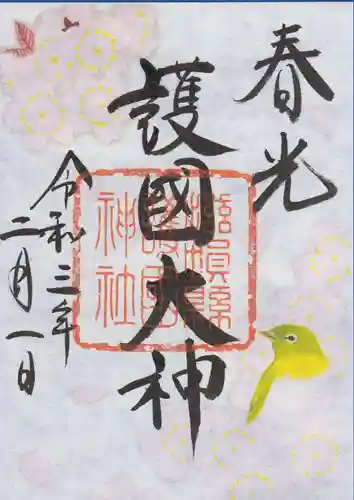 春光
護國大神
滋賀縣
護國
神社
令和三年
二月一日